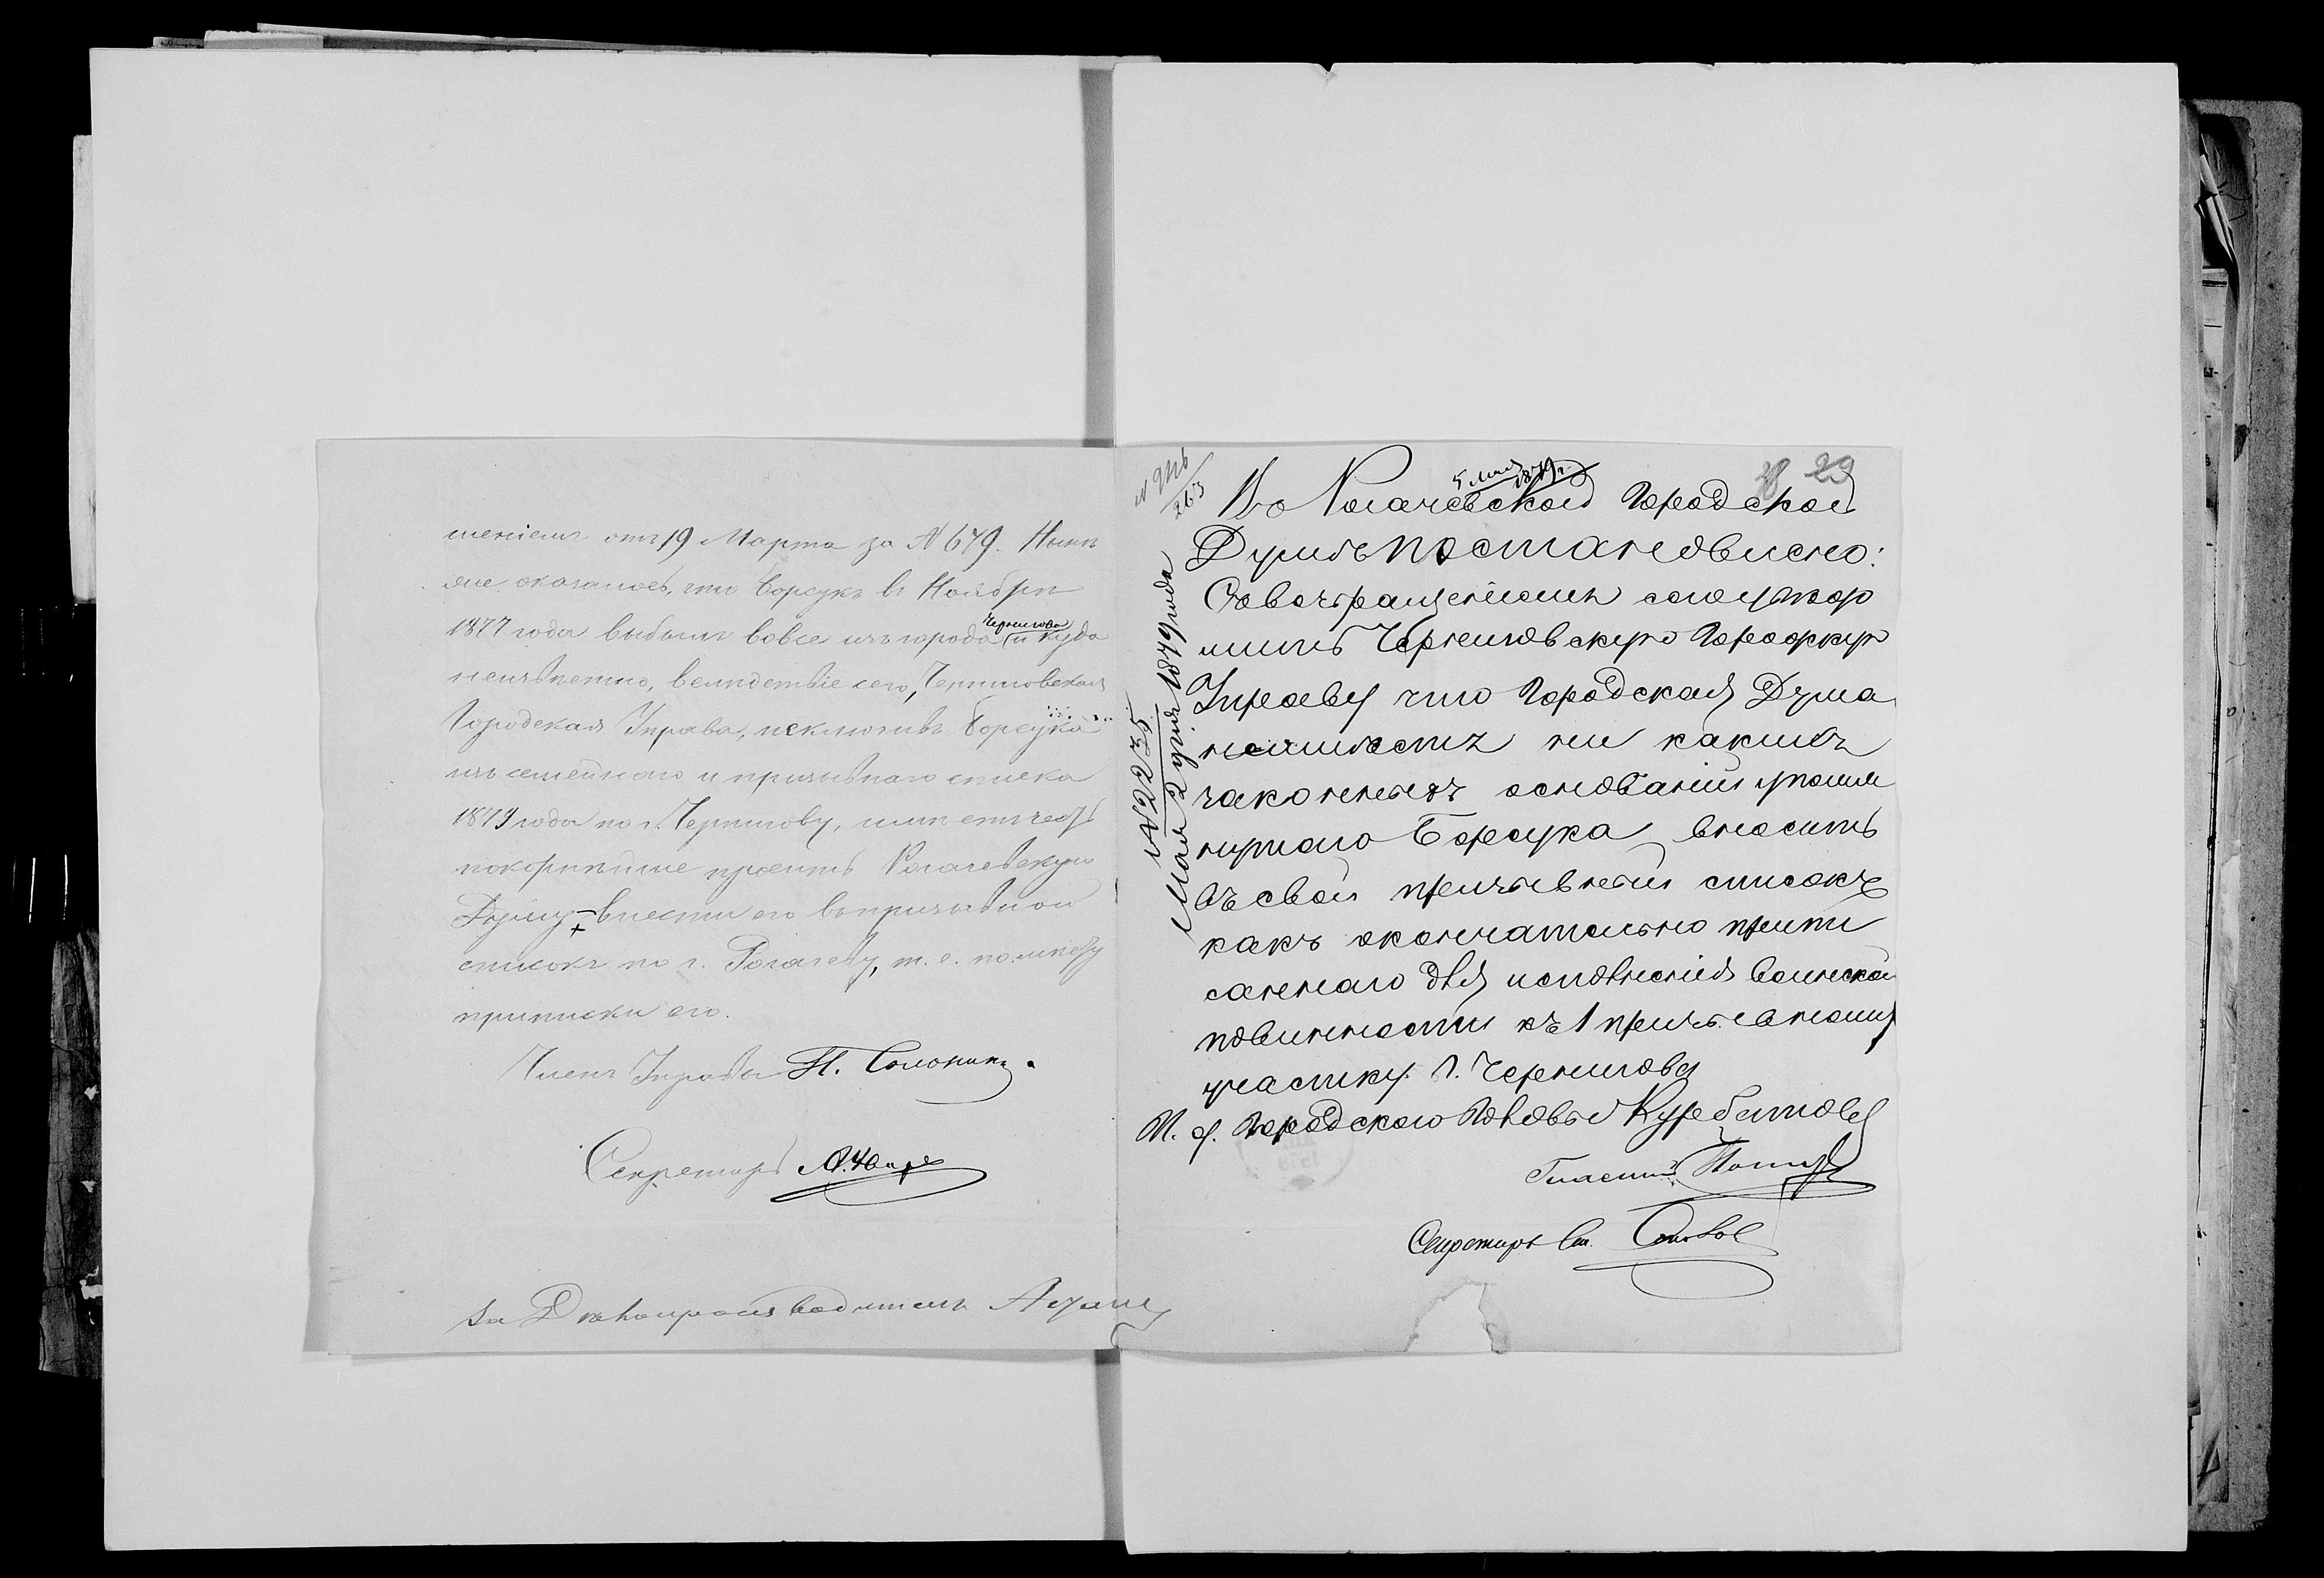 шеніемъ отъ 19 Марта за № 679. Нынѣ
же оказалось, что Борсукъ въ Ноябрѣ
1877 года выбылъ вовсе изъ города Чернигова и куда
неизвѣстно, вслѣдствіе сего, Черниговская
Городская Управа, исключивъ Борсука
изъ семейнаго и призывнаго списка
1879 года по г. Чернигову, имѣетъ честь
покорнѣйше просить Рогачевскую
Думу внести его въ призывной
списокъ по г. Рогачеву, т. е. по мѣсту
приписки его.
Членъ Управы Н.
Секретарь
За Дѣлопроизводителя
5 мая 1879 г.
29
Въ Рогачевской Городской
Думѣ постановлено:
Съ возвращеніемъ сего увѣдо
мить Черниговскую Городскую
Управу что Городская Дума
неимѣетъ ни какихъ
законныхъ основаній упомя
нутаго Борсука вносить
въ свой призывный списокъ
какъ окончательно припи
саннаго для исполненія воинской
повинности къ 1 призывному
участку г. Чернигова
И. д. Городского Головы Курбатовъ
Гласный
Секретарь
№ 2235
Мая 2 дня 1879 года